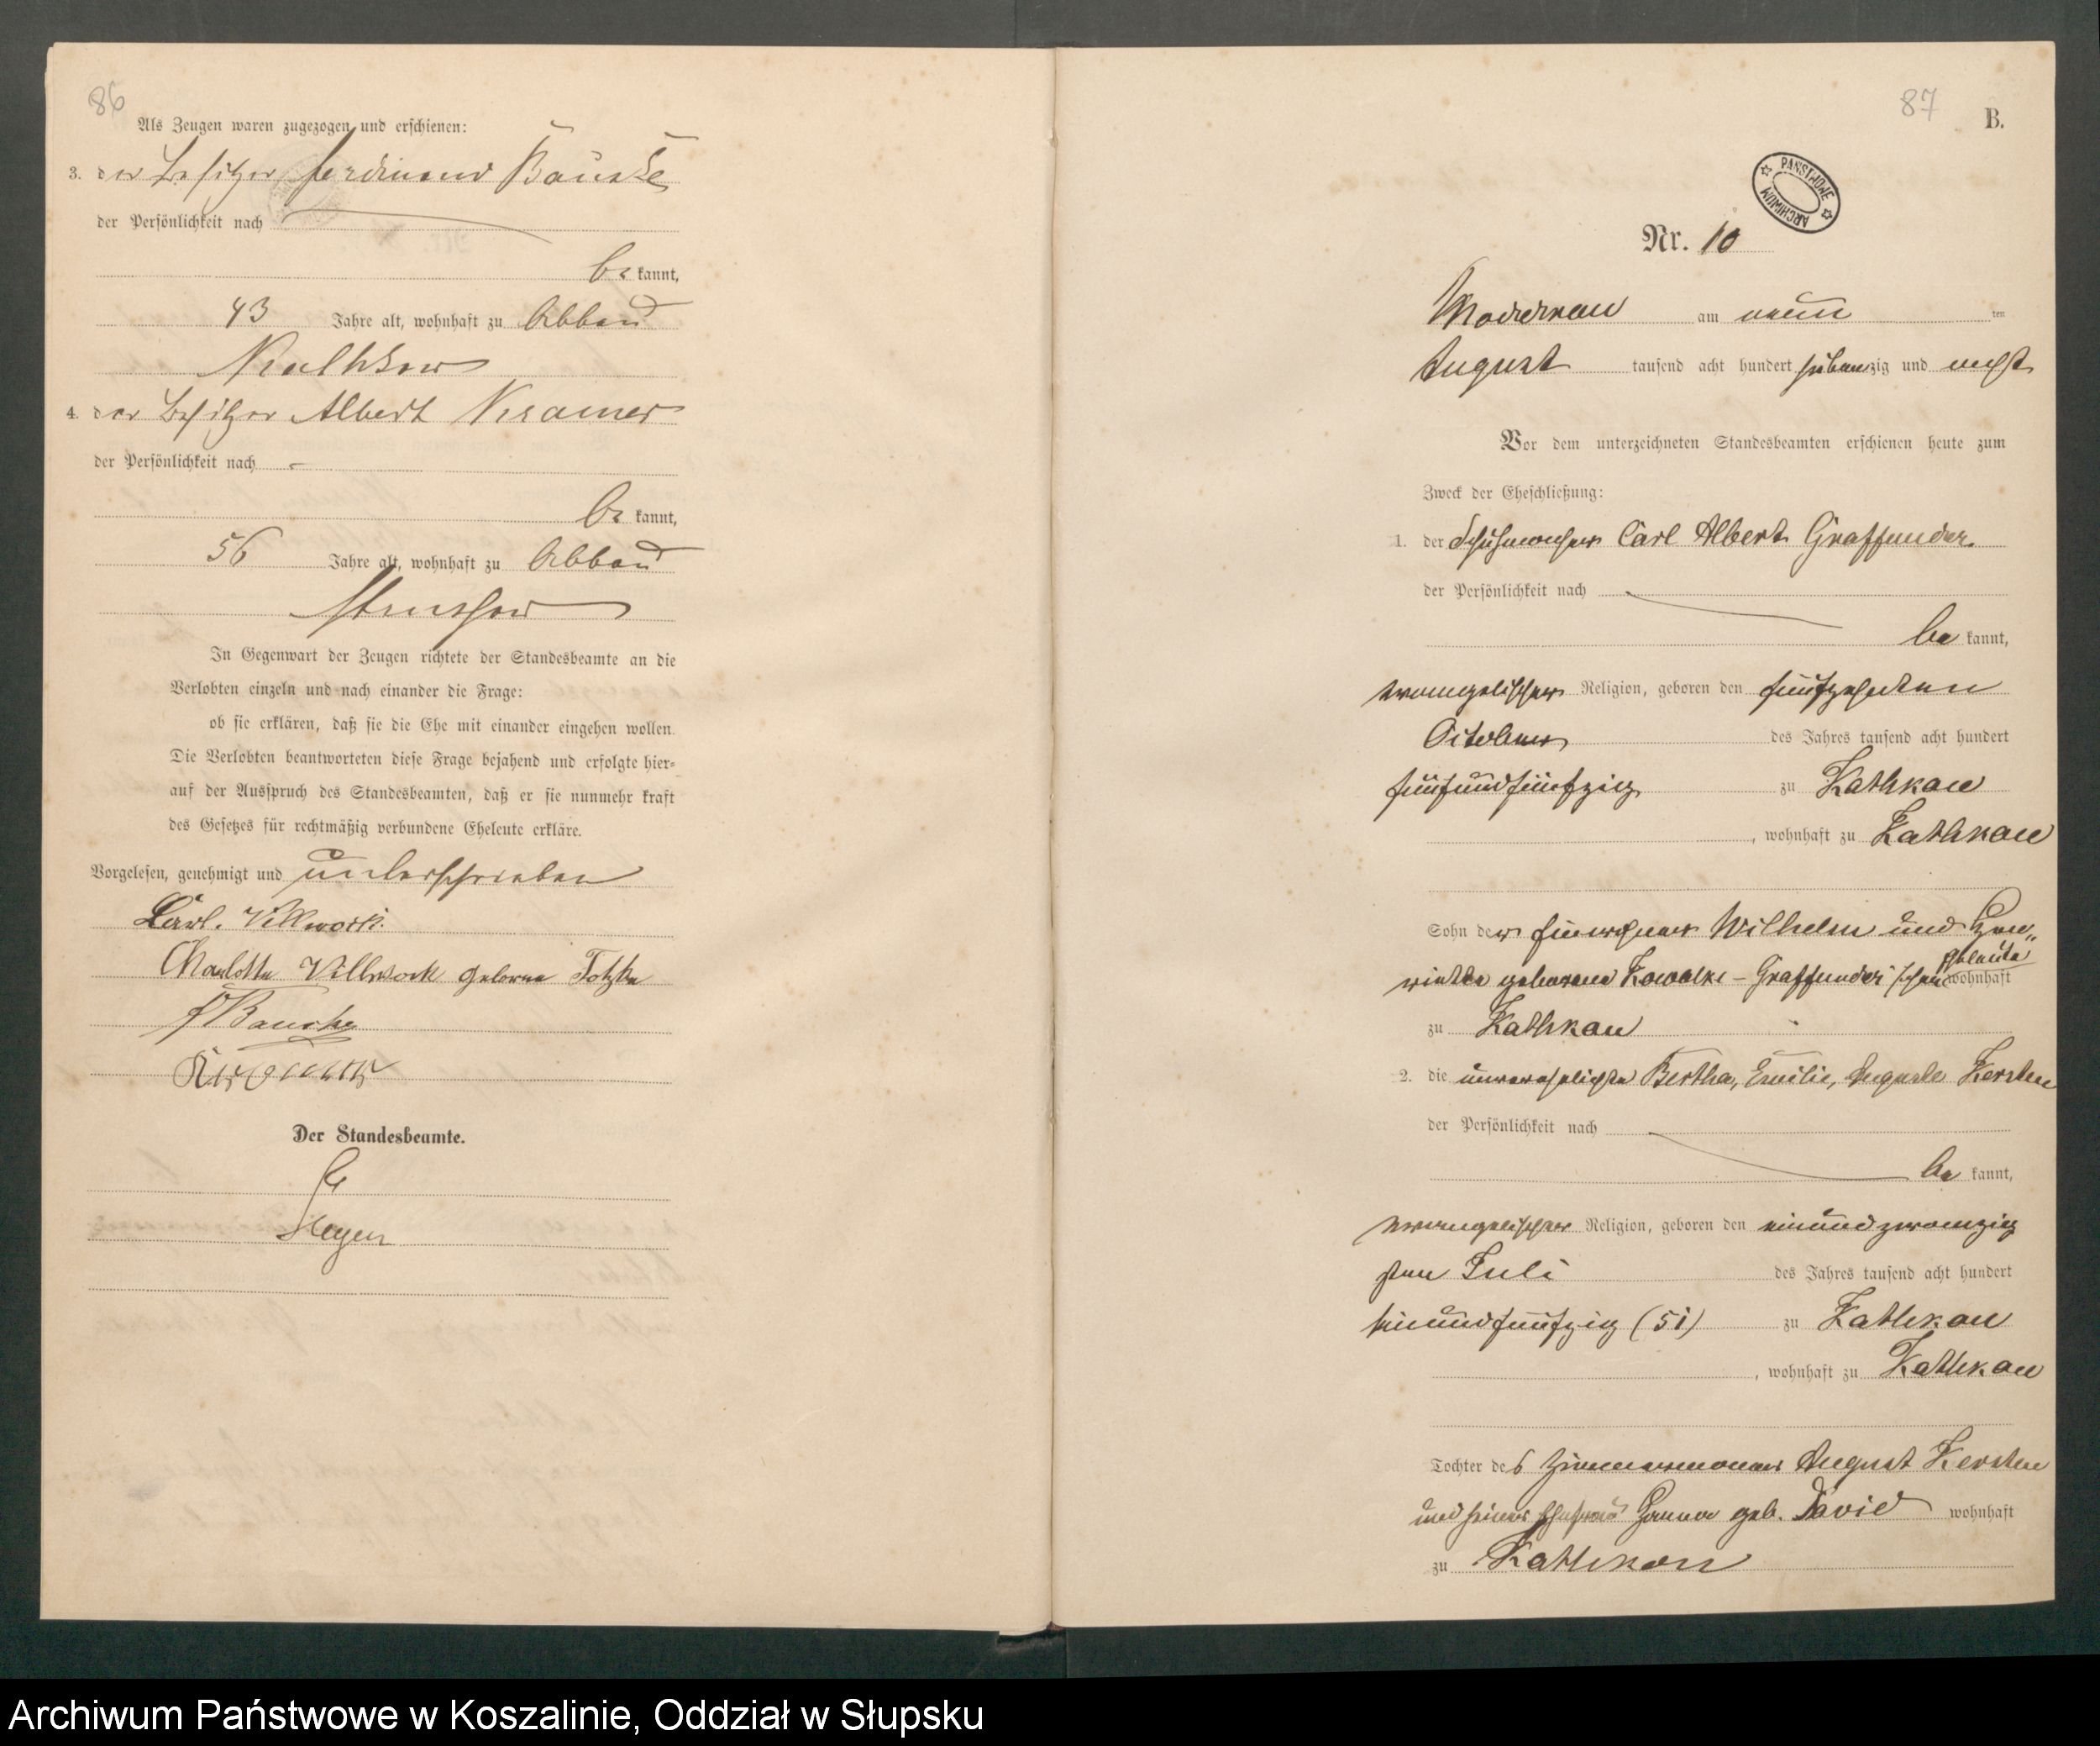 86
Als Zeugen waren zugezogen und erschienen:
3. der Besitzer Ferdinand Bauske
der Persönlichkeit nach
be kannt,
43 Jahre alt, wohnhaft zu Abbau
Kathkow
4. der Besitzer Albert Kramer
der Persönlichkeit nach
be kannt,
56 Jahre alt, wohnhaft zu Abbau
In Gegenwart der Zeugen richtete der Standesbeamte an die
Verlobten einzeln und nach einander die Frage:
ob sie erklären, daß sie die Ehe mit einander eingehen wollen.
Die Verlobten beantworteten diese Frage bejahend und erfolgte hier-
auf der Ausspruch des Standesbeamten, daß er sie nunmehr kraft
des Gesetzes für rechtmäßig verbundene Eheleute erkläre.
Vorgelesen, genehmigt und unterschrieben
Carl. Villwock.
Charlotte Villwock geborne Totzke
F Bauske
Kramer
Der Standesbeamte.
87
B.
PAŃSTWOWE ARCHIWUM
Nr. 10
Moddrow am neun ten
August tausend acht hundert siebenzig und acht
Vor dem unterzeichneten Standesbeamten erschienen heute zum
Zweck der Eheschließung:
1. der Schuhmacher Carl Albert Graffunder.
der Persönlichkeit nach
be kannt,
evangelischer Religion, geboren den fünfzehnten
October des Jahres tausend acht hundert
fünfundfünfzig zu Kathkow
, wohnhaft zu Kathkow
Sohn der Einwohner Wilhelm und Hen„
riette geborene Kowalke - Graffunder'schen Eheleute wohnhaft
zu Kathkow
2. die unverehelichte Bertha, Emilie, Auguste Kersten
der Persönlichkeit nach
be kannt,
evangelischer Religion, geboren den einundzwanzig
sten Juli des Jahres tausend acht hundert
einundfünfzig (51) zu Kathkow
, wohnhaft zu Kathkow
Tochter des Zimmermanns August Kersten
und seiner Ehefrau Hanna geb. David wohnhaft
zu Kathkow
Archiwum Państwowe w Koszalinie, Oddział w Słupsku